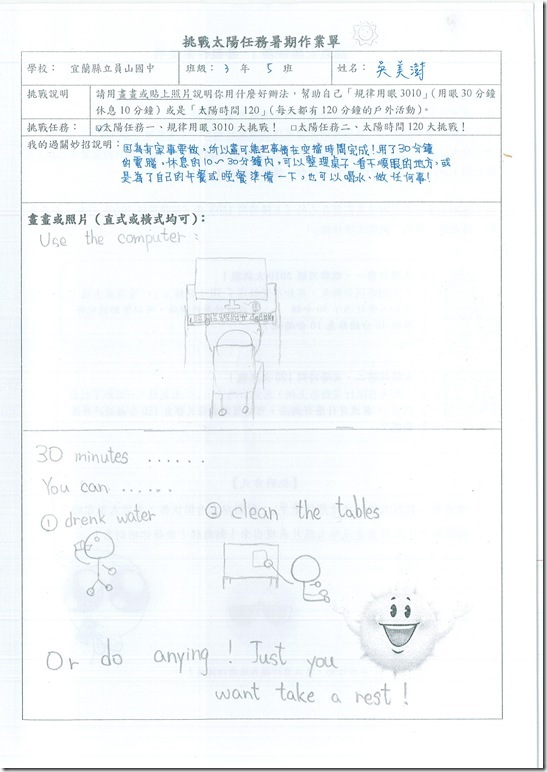 挑戰太陽任務暑期作業單
學校： 宜蘭縣立員山國中 班級：3 年 5 班 姓名：吳美澍
挑戰說明 請用畫畫或貼上照片說明你用什麼好辦法，幫助自己「規律用眼3010」(用眼 30 分鐘
休息 10 分鐘）或是「太陽時間 120」(每天都有 120 分鐘的戶外活動)。
挑戰任務： ☑太陽任務一、規律用眼 3010 大挑戰！ □太陽任務二、太陽時間 120 大挑戰！
我的過關妙招說明： 因為有家事要做，所以盡可能把事情在空擋時間完成！用了30分鐘
的電腦，休息的10～30分鐘內，可以整理桌子、看不順眼的地方，或
是為了自己的午餐或晚餐準備一下，也可以喝水、做任何事！
畫畫或照片（直式或橫式均可）：
Use the computer：
30 minutes ......
You can ......
① drenk water ② clean the tables
Or do anying ! Just you
want take a rest !